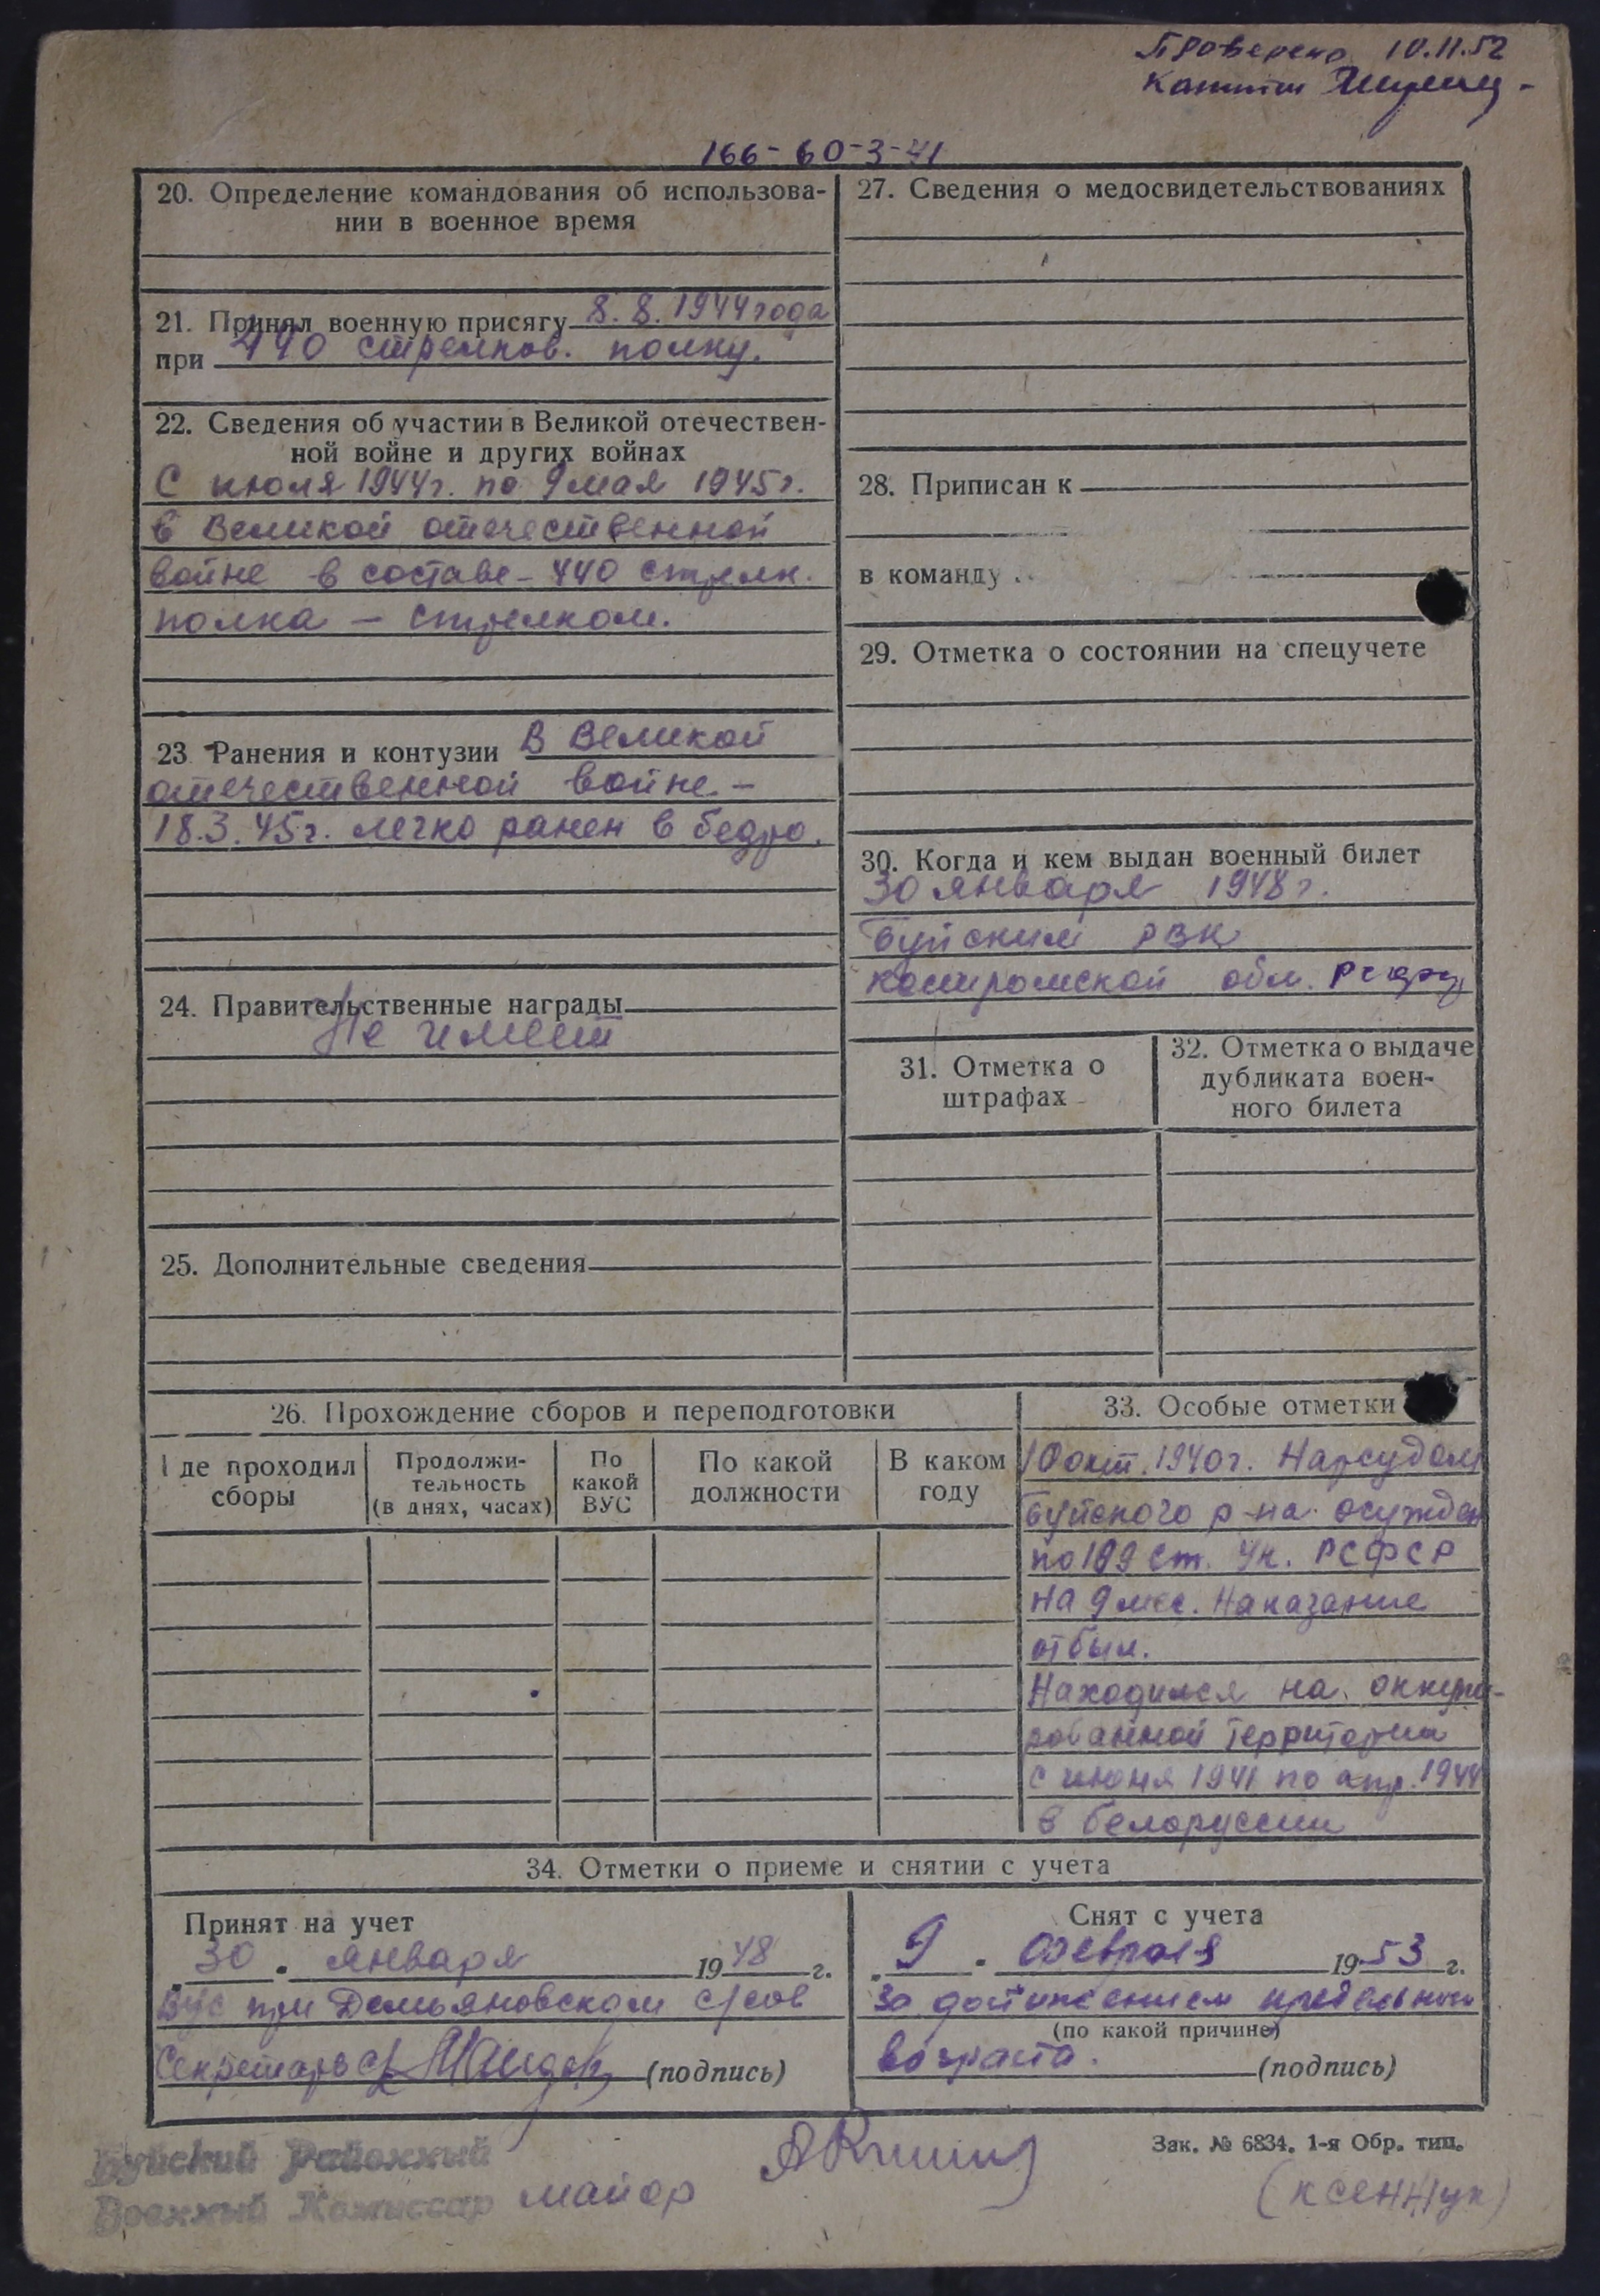 Проверено 10.11.52
Капитан
166-60-3-41
20. Определение командования об использова-
нии в военное время
21. Принял военную присягу 8.8.1944 года
при 440 стрелков. полку.
22. Сведения об участии в Великой отечествен-
ной войне и других войнах
С июля 1944г. по 9 мая 1945г.
в Великой отечественной
войне в составе - 440 стрелк.
полка - стрелком.
23 Ранения и контузии В Великой
отечественной войне -
18.3.45г. легко ранен в бедро.
24. Правительственные награды
Не имеет
25. Дополнительные сведения
27. Сведения о медосвидетельствованиях
28. Приписан к
в команду
29. Отметка о состоянии на спецучете
30. Когда и кем выдан военный билет
30 января 1948г.
Буйским РВК
Костромской обл. РСФСР
31. Отметка о
штрафах
32. Отметка о выдаче
дубликата воен-
ного билета
26. Прохождение сборов и переподготовки
Где проходил
сборы
Продолжи-
тельность
(в днях, часах)
По
какой
ВУС
По какой
должности
В каком
году
33. Особые отметки
10 окт. 1940г. Нарсудом
Буйского р-на осужден
по 199 ст. Ук. РСФСР
на 9 мес. Наказание
отбыл.
Находился на оккупи-
рованной территории
с июня 1941 по апр. 1944
в Белоруссии
34. Отметки о приеме и снятии с учета
Принят на учет
30 . января 1948 г.
ВУС при Демьяновском с/сов
Секретарь с/с (подпись)
Снят с учета
9 . февраля 1953 г.
за достижением предельного
(по какой причине)
возраста. (подпись)
Буйский Районный
Военный Комиссар майор
Зак. № 6834. 1-я Обр. тип.
(Ксенджук)